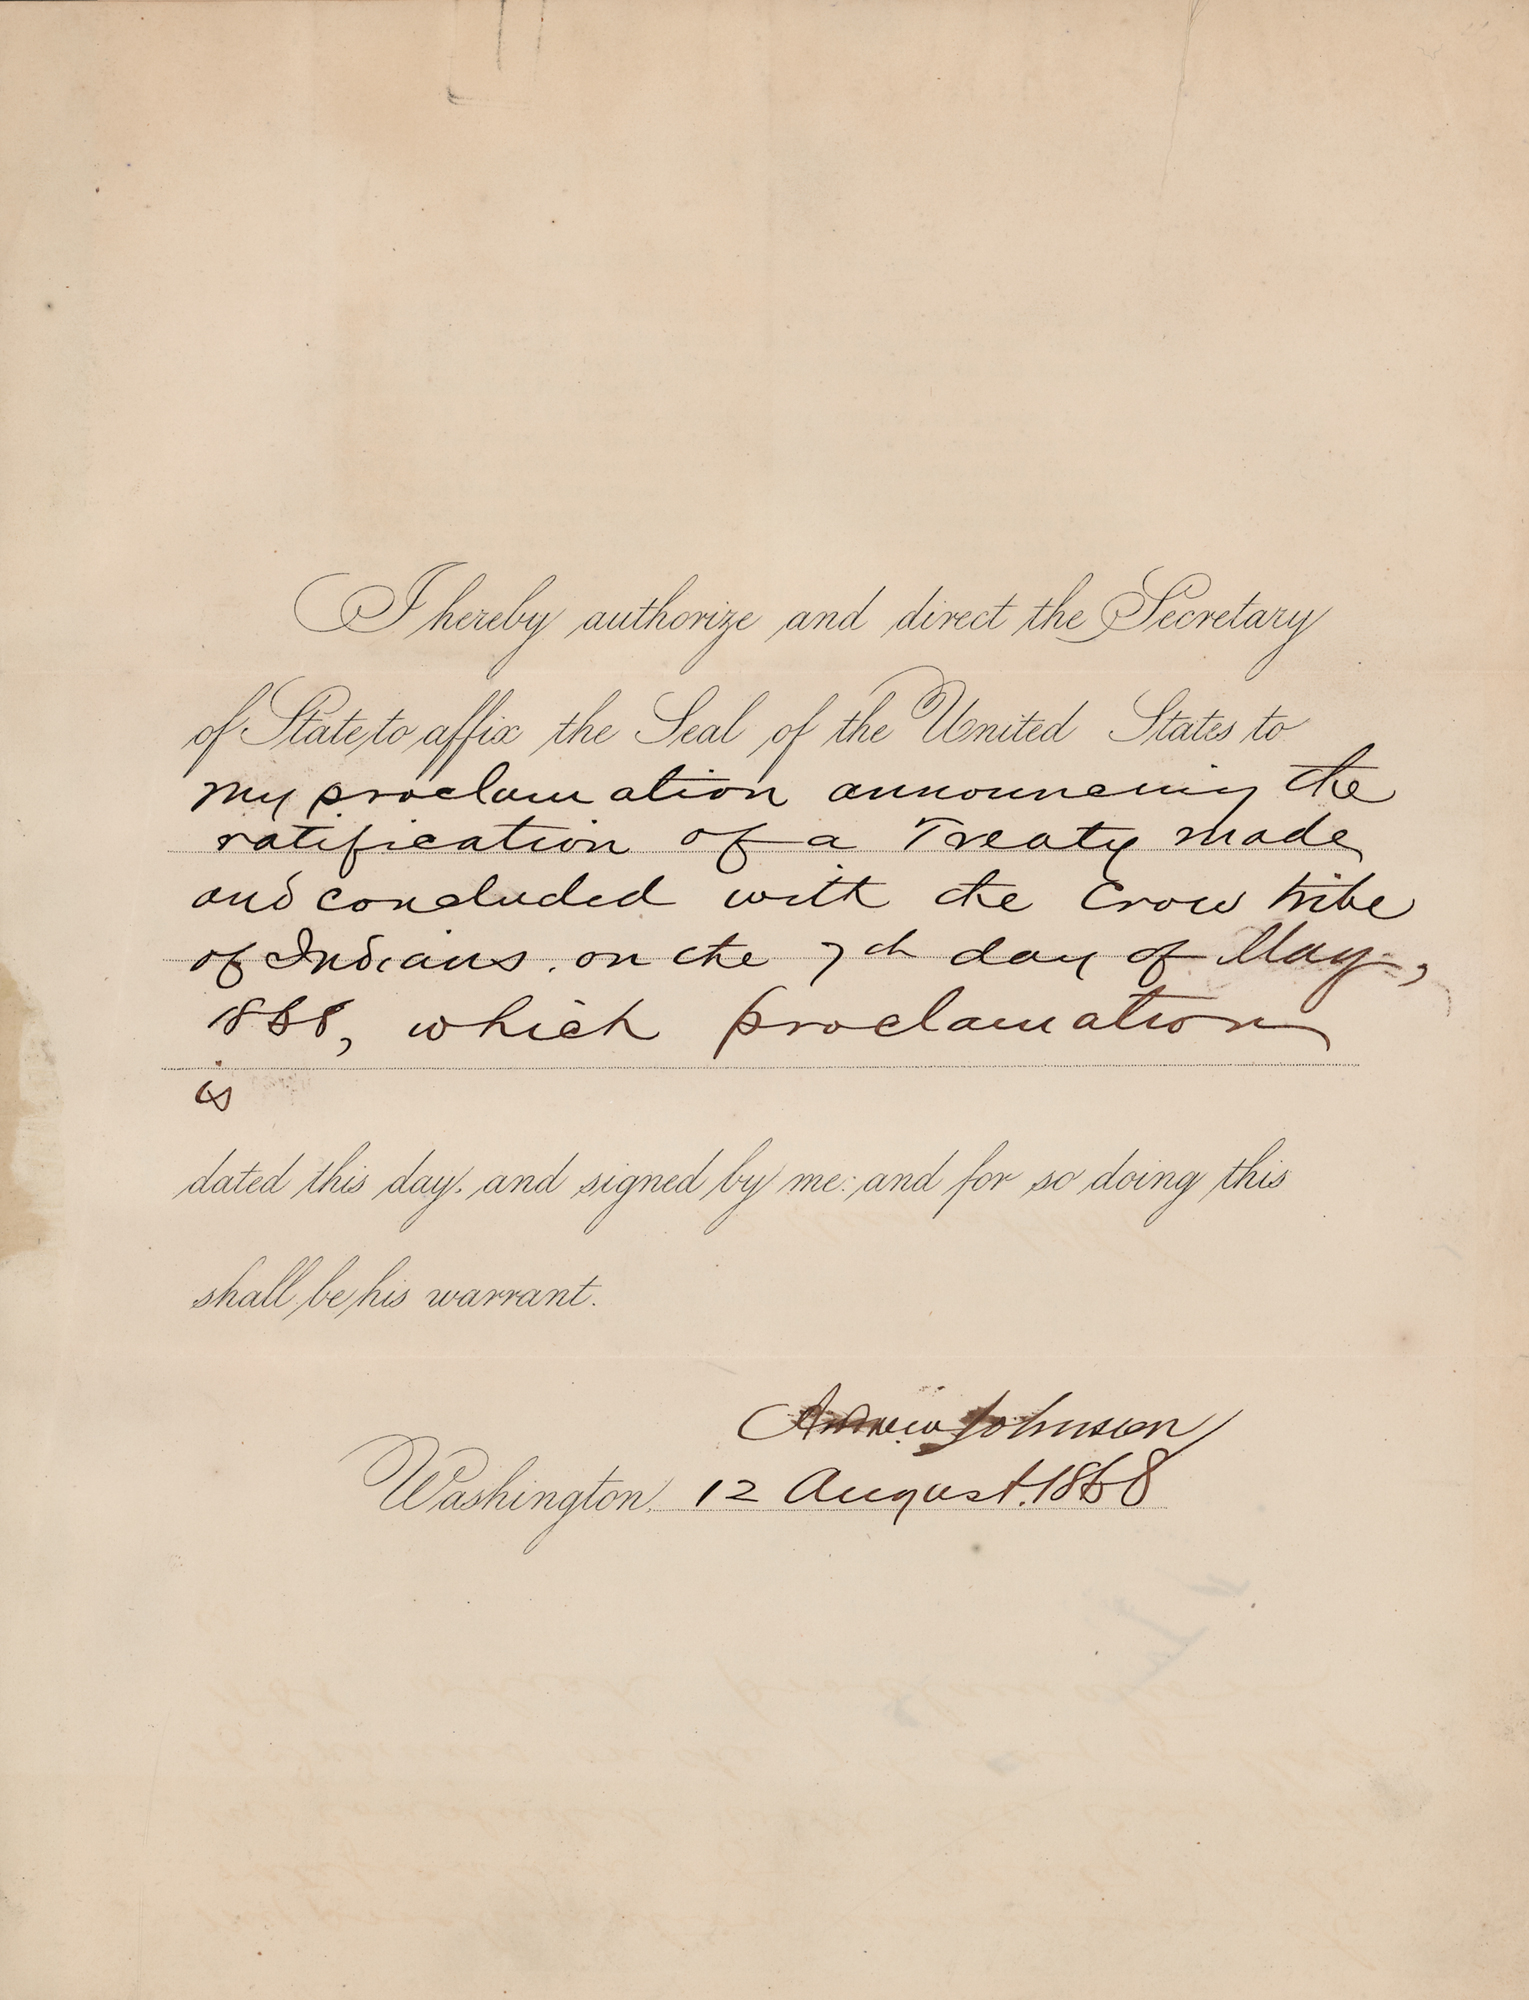 I hereby authorize and direct the Secretary
of State to affix the Seal of the United States to
my proclamation announcing the
ratification of a Treaty made
and concluded with the Crow tribe
of Indians, on the 7th day of May,
1868, which proclamation
is
dated this day, and signed by me: and for so doing this
shall be his warrant.
Andrew Johnson
Washington, 12 August. 1868